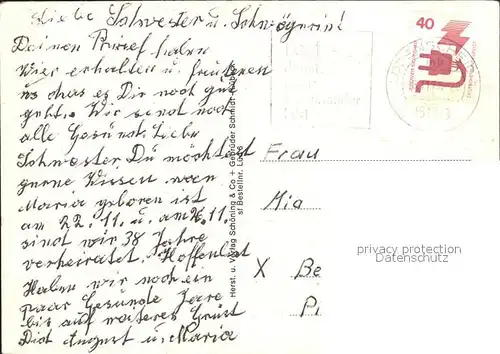 Liebe Schwester u. Schwögerin!
Deinen Brief haben
Wier erhalten u. freuteren
uns das es Dir noch gut
geht. Wir send noch
alle Gesund. Liebe
Schwester Du möchtest
gerne Wissen wen
Maria geboren ist
am 22. 11. u. am 26. 11.
sind wir 38 Jahre
verheiratet. Hoffenlist
Haben wir noch ein
paar Gesunde Jarre
bis auf weiteres Grüst
Dist August u. Maria
Herst. u. Verlag Schöning & Co + Gebrüder Schmidt
st Bestellnr.
40
Frau
Mia
X Be
privacy protection
Datenschutz